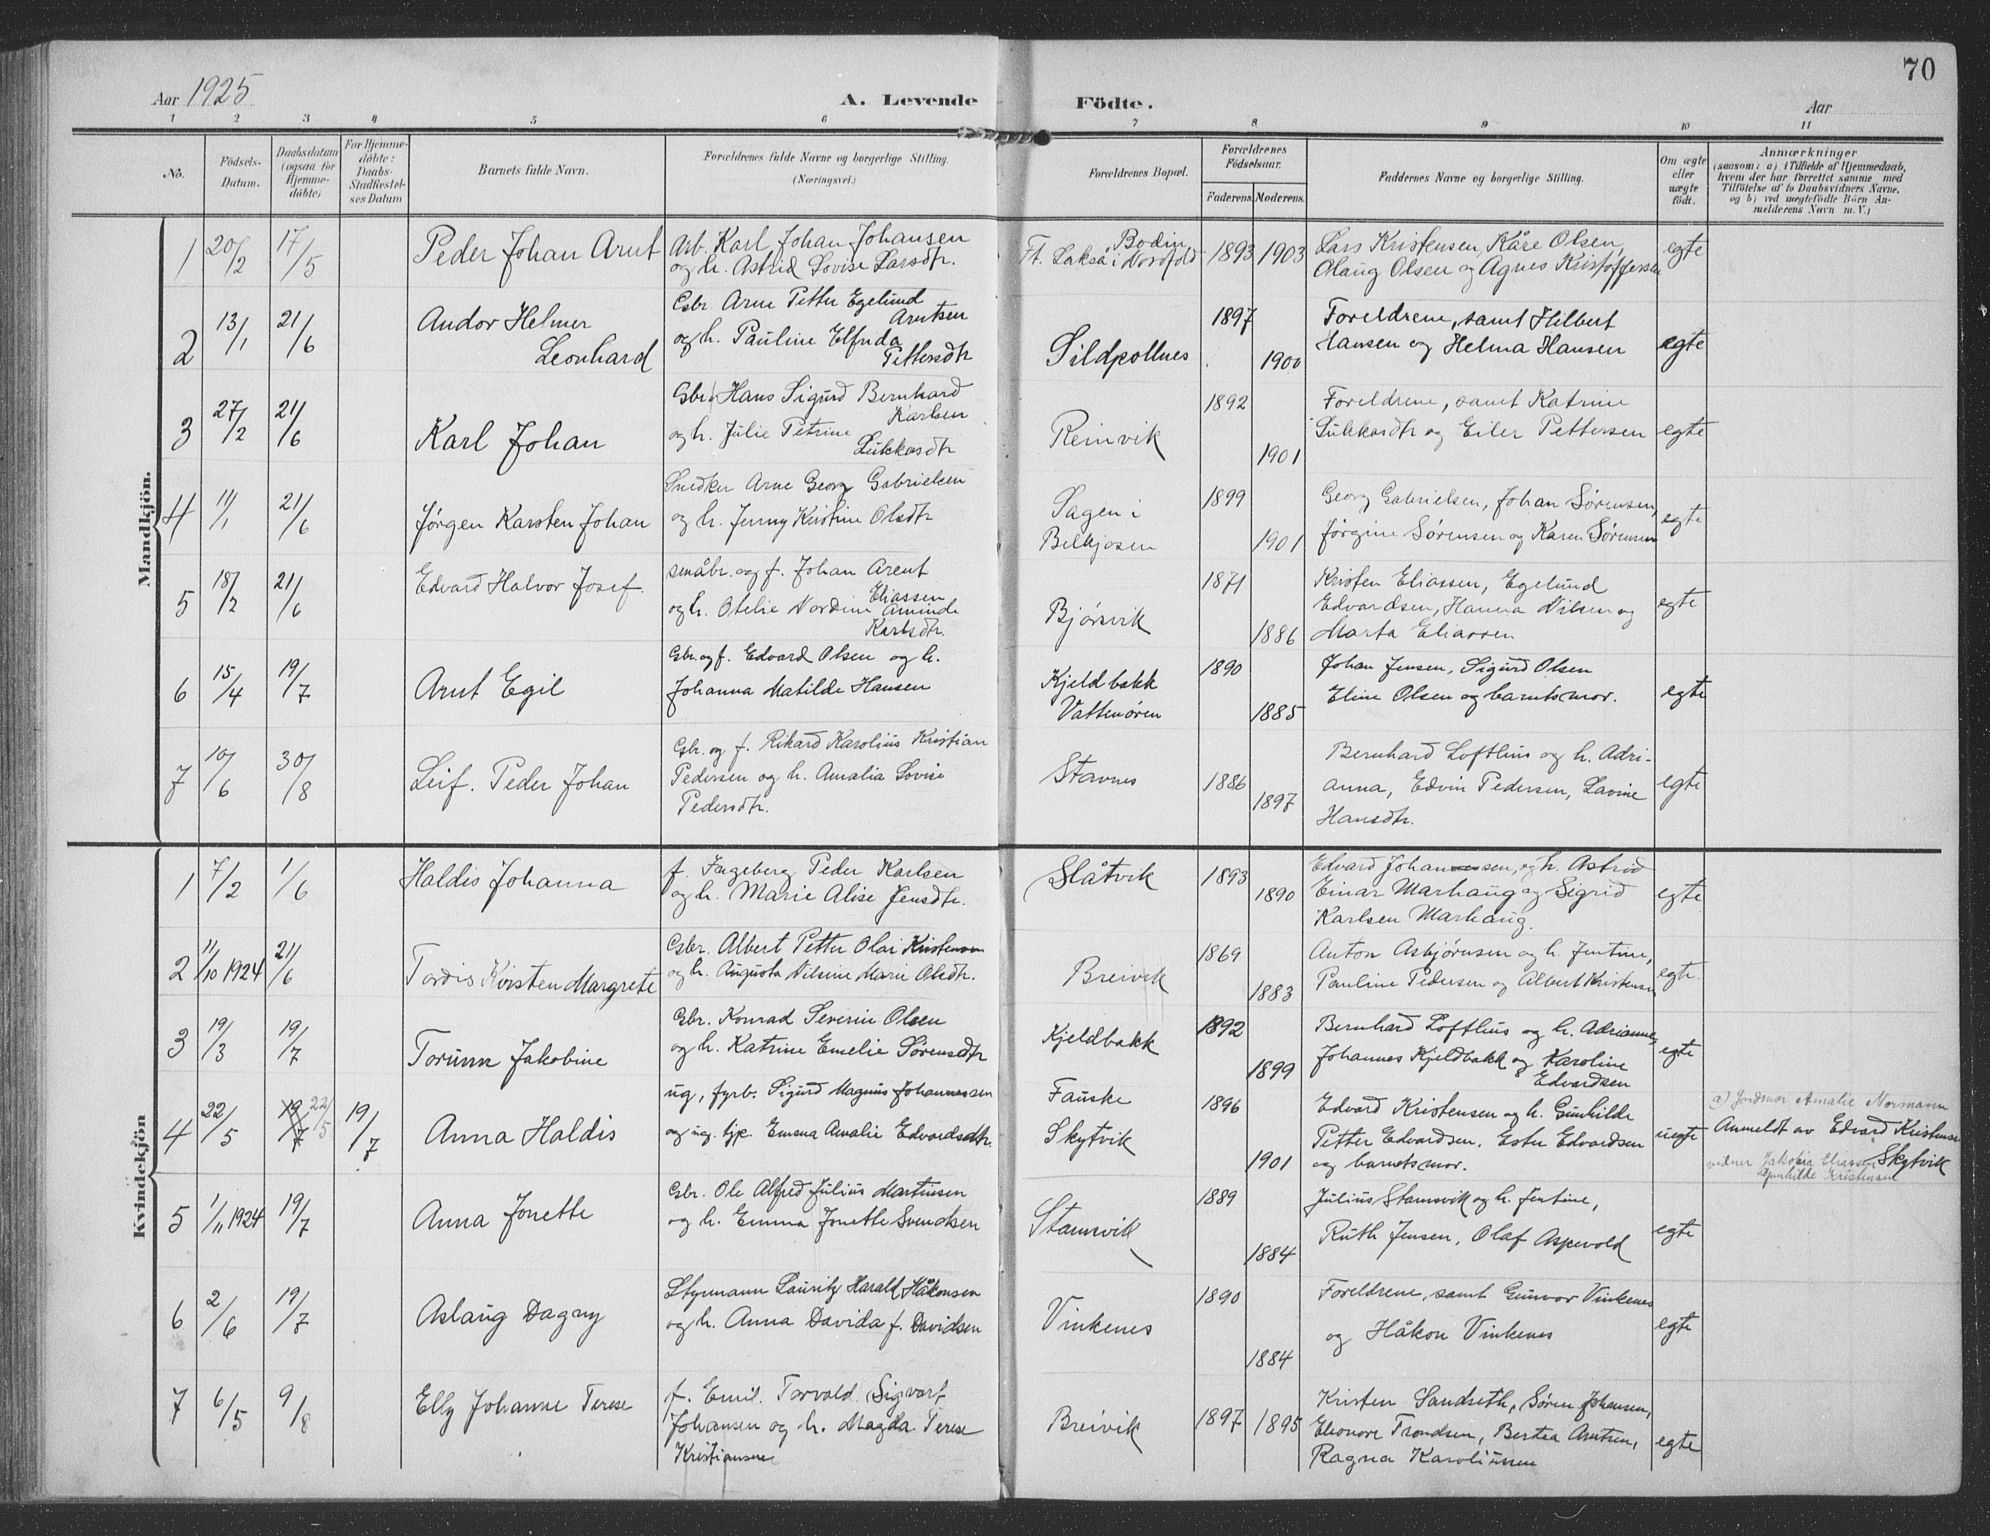 70
Aar 1925
A. Levende
Födte.
Aar
1 2 3 4 5 6 7 8 9 10 11
No.
Födsels-Datum.
Daabsdatum (ogsaa for Hjemmedöbte)
For Hjemmedöbte: Daabs-Stadfæstelses Datum
Barnets fulde Navn.
Forældrenes fulde Navne og borgerlige Stilling.
(Næringsvei.)
Forældrenes Bopæl.
Forældrenes Födselsaar.
Faderens. Moderens.
Faddernes Navne og borgerlige Stilling.
Om ægte eller uægte födt.
Anmærkninger
(saasom: a) i Tilfælde af Hjemmedaab,
hvem der har forrettet samme med
Tilföielse af to Daabsvidners Navne.
og b) ved uegtefödte Börn An-
melderens Navn m. V.)
Mandkjön.
1 20/2 17/5 Peder Johan Arnt Arb. Karl Johan Johansen
og h. Astrid Lovise Larsdtr.
Bodin
Ft. Lakså i Nordfold 1893 1903
Lars Kristensen, Kåre Olsen,
Olaug Olsen og Agnes Kristoffersen egte
2 13/1 21/6 Andor Helmer
Leonhard
Gbr. Arne Petter Egelund
Arntsen
og h. Pauline Elfrida
Pettersdtr
Sildpollnes 1897 1900
Foreldrene, samt Hilbert
Hansen og Helma Hansen egte
3 27/2 21/6 Karl Johan
Gbr. Hans Sigurd Bernhard
Karlsen
og h. Julie Petrine
Lukkasdtr
Reinvik 1892 1901
Foreldrene, samt Katrine
Lukkasdtr og Eiler Pettersen egte
4 11/1 21/6 Jørgen Karsten Johan
Snedker Arne Georg Gabrielsen
og h. Jenny Kristine Olsdtr
Hagen i
1899 1901
Georg Gabrielsen, Johan Sørensen,
Jørgine Sørensen og Karen Sørensen egte
5 18/2 21/6 Edvard Halvor Josef.
småbr. og f. Johan Arent
Eliassen
og h. Otelie Nordine Aminda
Karlsdtr.
Bjørsvik 1871 1886
Kristen Eliassen, Egelund
Edvardsen, Hanna Nilsen og
Marta Eliassen egte
6 15/4 19/7 Arnt Egil
Gbr. og f. Edvard Olsen og h.
Johanna Matilde Hansen
Kjeldbakk
Vattenøren 1890 1885
Johan Jensen, Sigurd Olsen
Eline Olsen og barnets mor. egte
7 10/6 30/8 Leif. Peder Johan
Gbr. og f. Rikard Karolius Kristian
Pedersen og h. Amalia Lovise
Pedersdtr.
Stavnes 1886 1897
Bernhard Lofthus og h. Adri-
anna, Edvin Pedersen, Lavine
Hansdtr. egte
Kvindekjön
1 7/2 1/6 Haldis Johanna
f. Ingeberg Peder Karlsen
og h. Marie Alise Jensdtr.
Slåtvik 1893 1890
Edvard Johannessen, og h. Astrid
Einar Marhaug og Sigrid
Karlsen Marhaug. egte
2 11/10 1924 21/6 Tordis Kirsten Margrete
Gbr. Albert Petter Olai Kristensen
og h. Augusta Nilsine Marie Olsdtr.
Breivik 1869 1883
Anton Asbjørnsen og h. Jentine,
Pauline Pedersen og Albert Kristensen egte.
3 19/3 19/7 Torunn Jakobine
Gbr. Konrad Severin Olsen
og h. Katrine Emelie Sørensdtr
Kjeldbakk 1892 1899
Bernhard Lofthus og h. Adrianne,
Johannes Kjeldbakk og Karoline
Edvardsen egte
4 22/5 19/7 22/5 19/7 Anna Haldis
ug, fyrb. Sigurd Magnus Johannessen
og ug. tjp. Emma Amalie Edvardsdtr.
Fauske
Skytvik 1896 1901
Edvard Kristensen og h. Gunhilde
Petter Edvardsen, Ester Edvardsen
og barnets mor. uegte
a) Jordmor Amalie Normann
Anmeldt av Edvard Kristensen
Skytvik
vidner Jakobia Eliassen
Gunhilde Kristensen
5 1/11 1924 19/7 Anna Jonette
Gbr. Ole Alfred Julius Martinsen
og h. Emma Jonette Svendsen
Stamsvik 1889 1884
Julius Stamsvik og h. Jentine,
Ruth Jensen, Olaf Aspevold egte
6 2/6 19/7 Aslaug Dagny
Styrmann Lauritz Harald Håkonsen
og h. Anna Davida f. Davidsen
Vinkenes 1890 1884
Foreldrene, samt Gunvor Vinkenes
og Håkon Vinkenes egte
7 6/5 9/8 Elly Johanne Terese
f. Emil. Torvald Sigvart
Johansen og h. Magda Terese
Kristiansen
Breivik 1897 1895
Kristen Sandseth, Søren Johansen,
Eleonore Trondsen, Bertea Arntsen,
Ragna Karoliussen egte